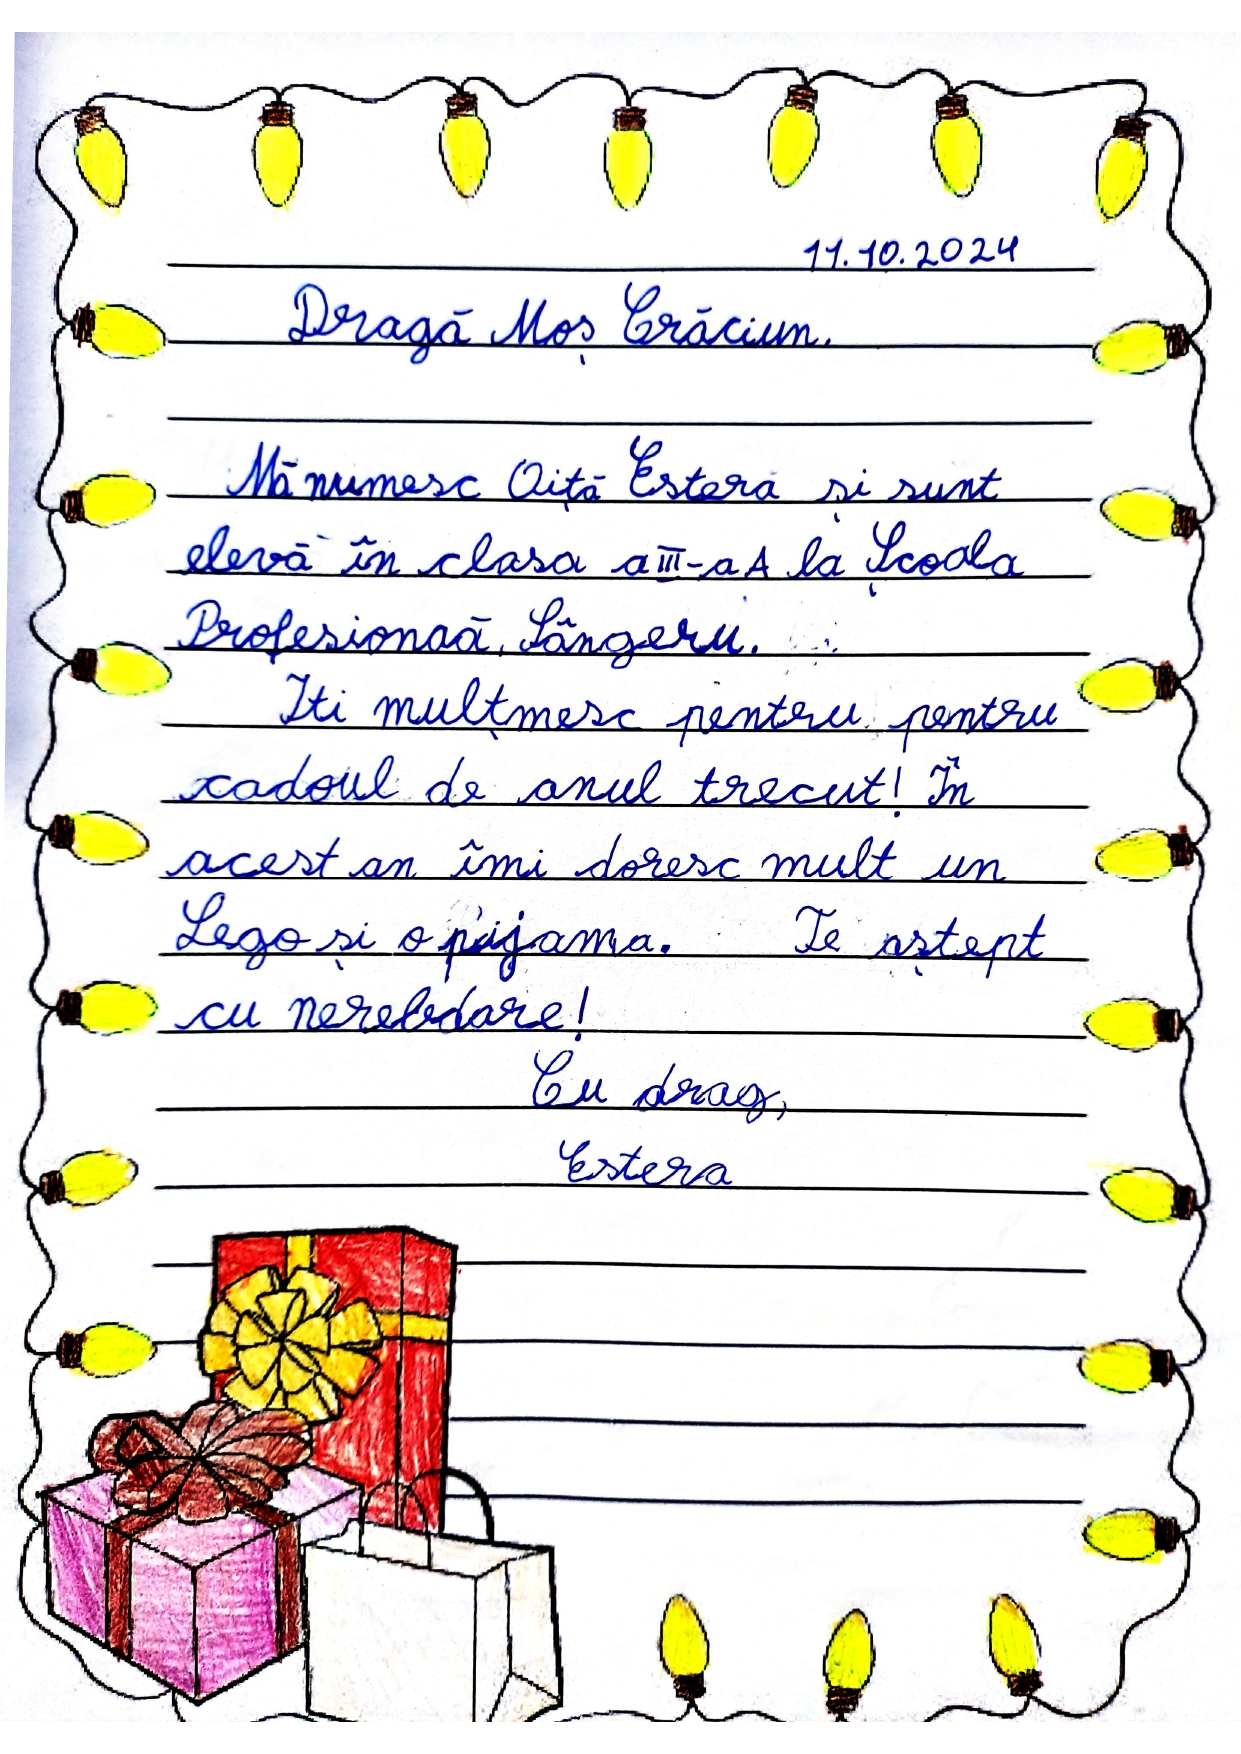 11.10.2024
Dragă Moș Crăciun.
Mă numesc Oiță Estera și sunt
elevă în clasa a III-a A la Școala
Profesionaă, Sângeru.
Iti mulțmesc pentru pentru
cadoul de anul trecut! În
acest an îmi doresc mult un
Lego și o pijama. Te aștept
cu nerebdare!
Cu drag,
Estera